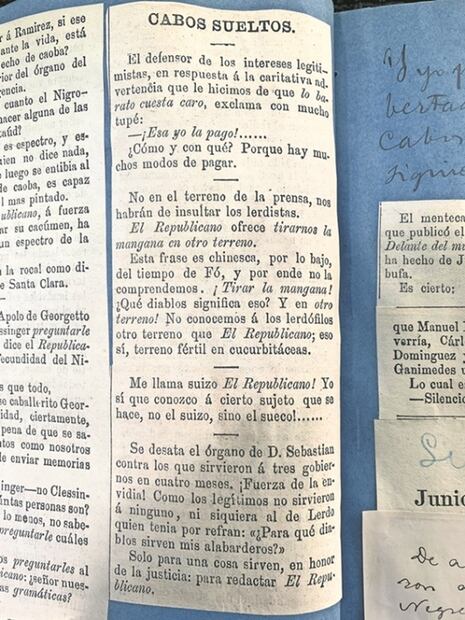 r á Ramirez, si ese
ante la vida, está
echo de caoba?
rior del órgano del
gencia.
cuanto el Nigro-
nacer alguna de las
taúd?
es espectro, y es-
uien no dice nada,
o luego se entibia al
de caoba, es capaz
l mas pintado.
publicano, á fuerza
ar su cacúmen, ha
un espectro de la
la rocal como di-
e Santa Clara.
Apolo de Georgetto
ssinger preguntarle
dice el Republica-
fecundidad del Ni-
s que todo,
se caballrito Geor-
idad, ciertamente,
pena de que se sa-
ntos como nosotros
e enviar memorias
nger—no Clessin-
ntas personas son?
lo menos, no sabe-
preguntarle cuáles
os preguntarles al
icano: ¿señor nues-
gramáticas?
CABOS SUELTOS.
El defensor de los intereses legiti-
mistas, en respuesta á la caritativa ad-
vertencia que le hicimos de que lo ba-
rato cuesta caro, exclama con mucho
tupé:
—¡Esa yo la pago!......
¿Cómo y con qué? Porque hay mu-
chos modos de pagar.
No en el terreno de la prensa, nos
habrán de insultar los lerdistas.
El Republicano ofrece tirarnos la
mangana en otro terreno.
Esta frase es chinesca, por lo bajo,
del tiempo de Fó, y por ende no la
comprendemos. ¡Tirar la mangana!
¿Qué diablos significa eso? Y en otro
terreno! No conocemos á los lerdófilos
otro terreno que El Republicano; eso
sí, terreno fértil en cucurbitáceas.
Me llama suizo El Republicano! Yo
sí que conozco á cierto sujeto que se
hace, no el suizo, sino el sueco!......
Se desata el órgano de D. Sebastian
contra los que sirvieron á tres gobier-
nos en cuatro meses. ¡Fuerza de la en-
vidia! Como los legítimos no sirvieron
á ninguno, ni siquiera al de Lerdo
quien tenia por refran: «¿Para qué dia-
blos sirven mis alabarderos?»
Solo para una cosa sirven, en honor
de la justicia: para redactar El Repu-
blicano.
Y yo
berta
Cabos
siguie
El menteca
que publicó el
Delante del mu
ha hecho de J
bufa.
Es cierto:
que Manuel
verría, Cárl
Dominguez y
Ganimedes u
Lo cual e
—Silenci
Junio
De a
ron a
Negre